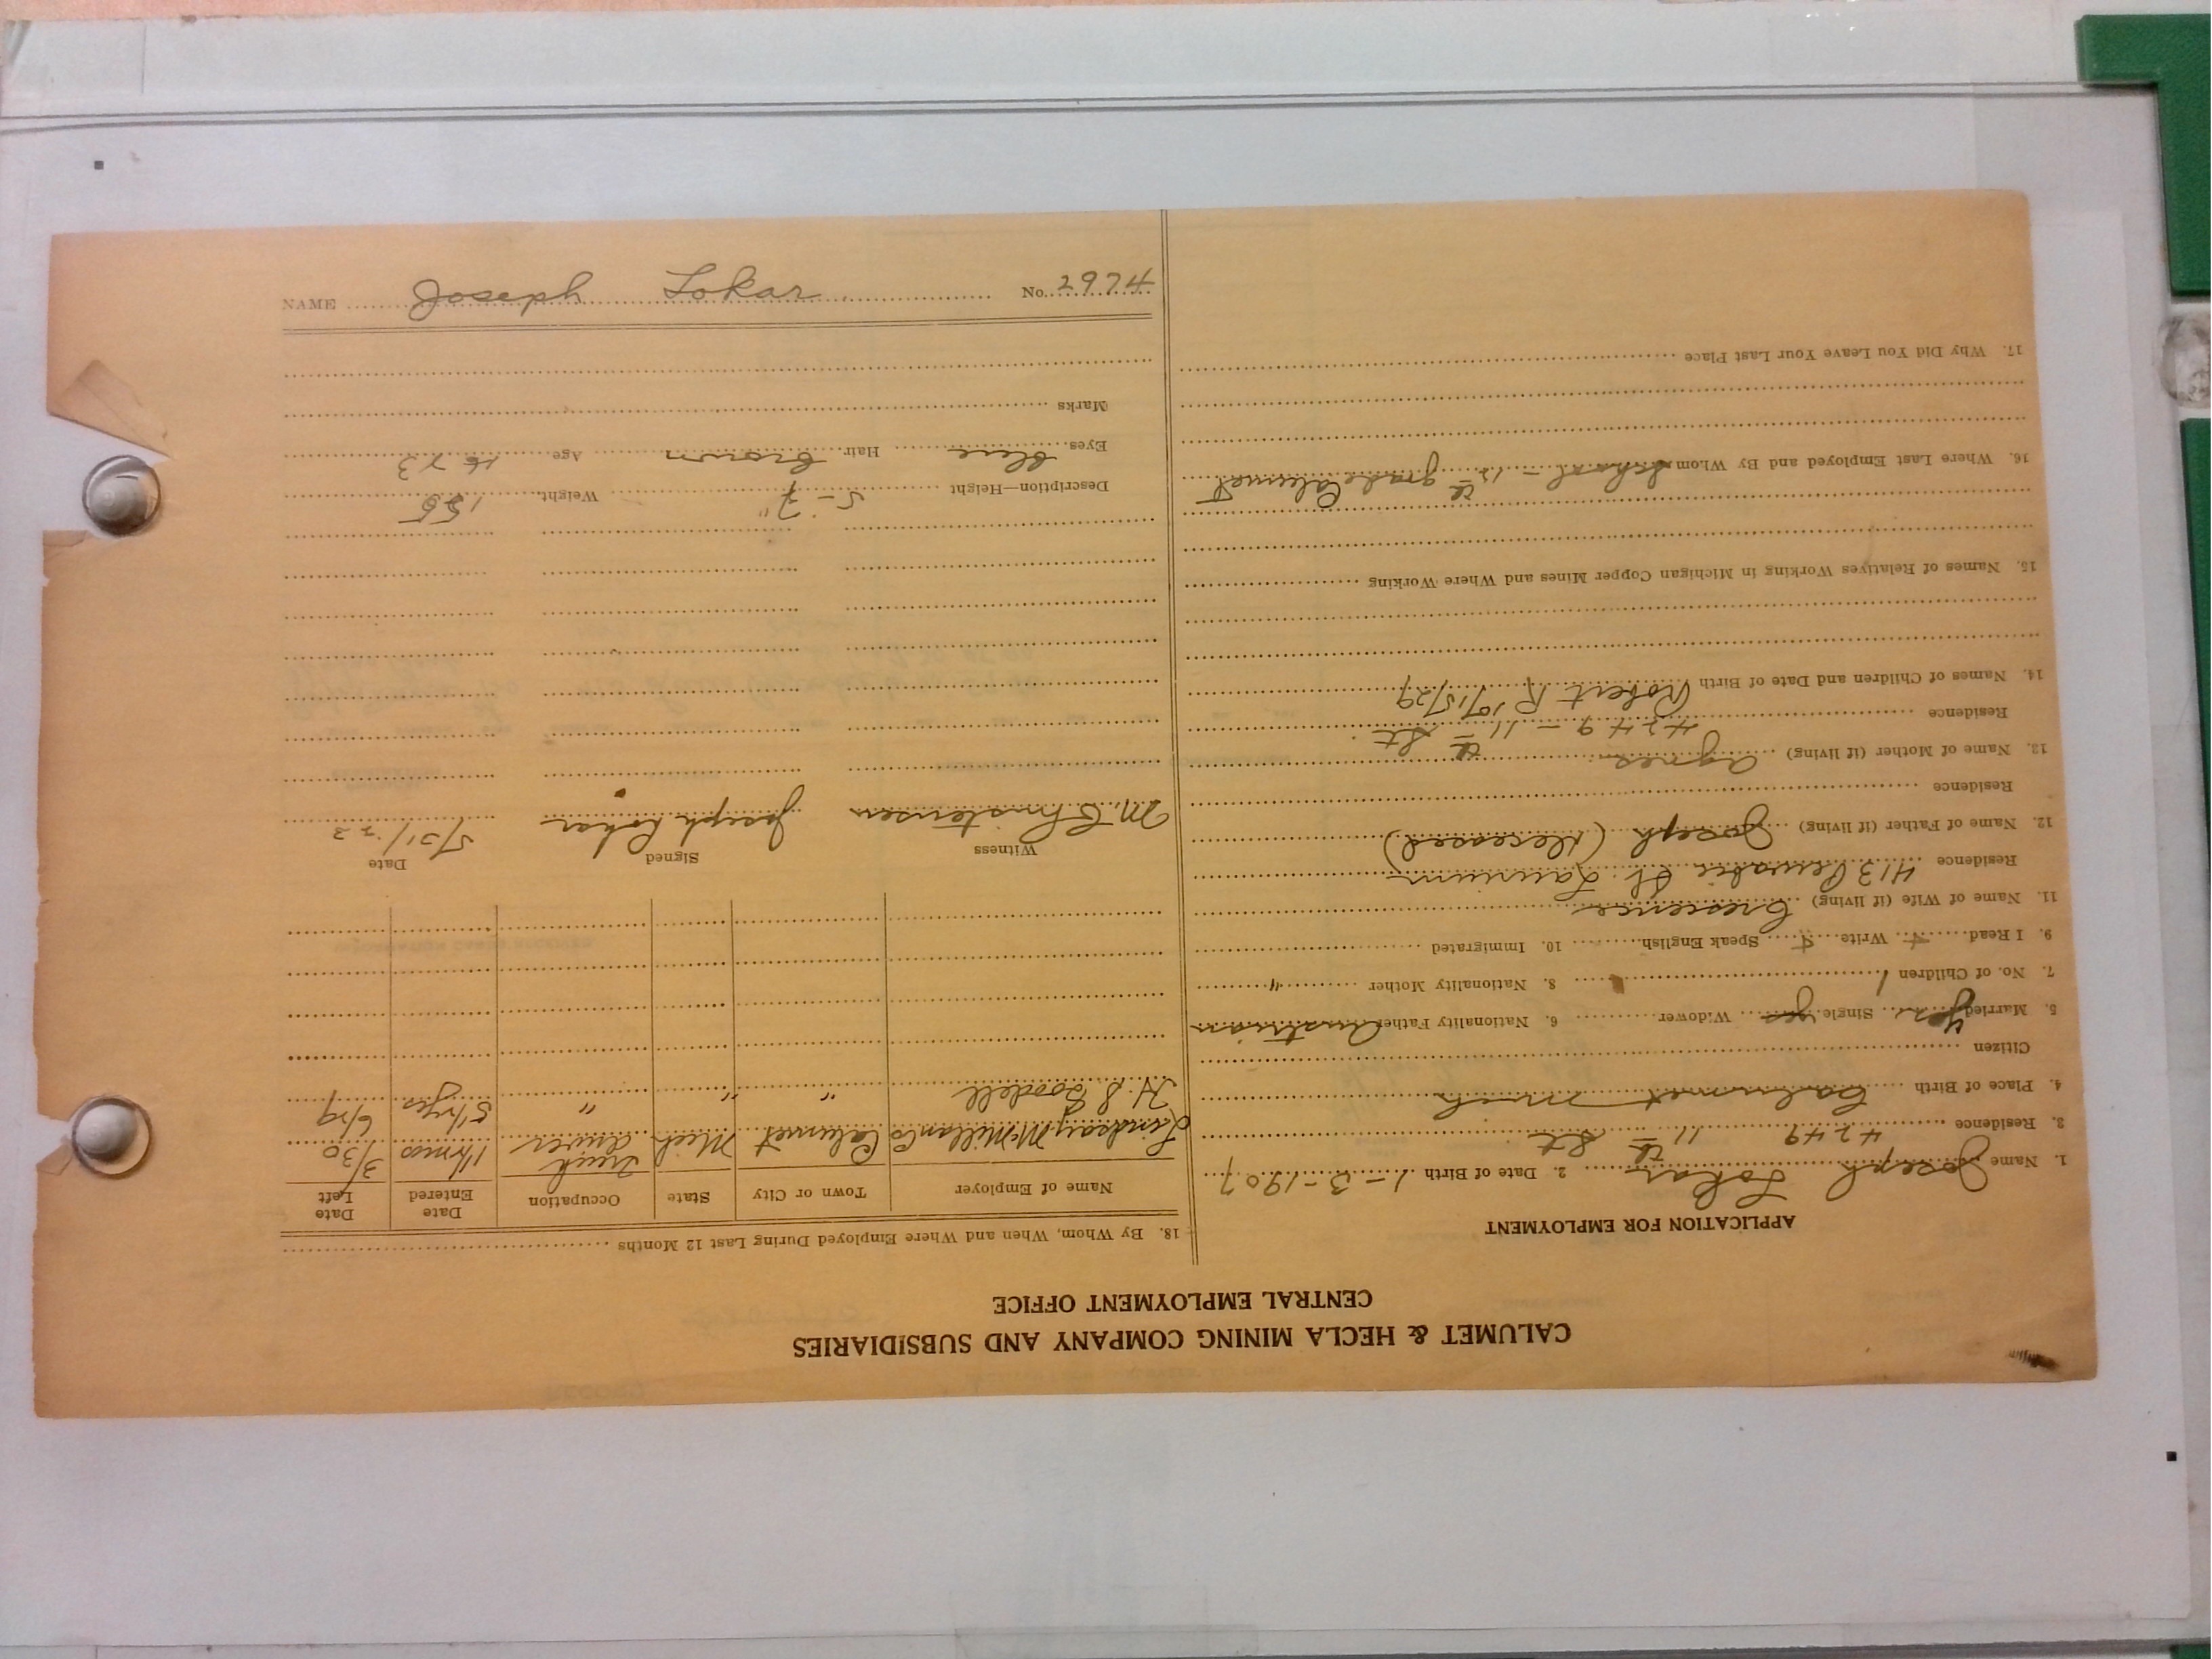 CALUMET & HECLA MINING COMPANY AND SUBSIDIARIES
CENTRAL EMPLOYMENT OFFICE
APPLICATION FOR EMPLOYMENT
1. Name Joseph Lokar 2. Date of Birth 1-3-1907
3. Residence 4249 11th St
4. Place of Birth Calumet Mich
Citizen
5. Married yes Single yes Widower 6. Nationality Father Austrian
7. No. of Children 1 8. Nationality Mother "
9. I Read Write Speak English 10. Immigrated
11. Name of Wife (if living) Crescence
Residence 413 Pewabic St. Laurium
12. Name of Father (if living) Joseph (deceased)
Residence
13. Name of Mother (if living) Agnes
Residence 4249 - 11th St.
14. Names of Children and Date of Birth Robert R 10/15/29
15. Names of Relatives Working in Michigan Copper Mines and Where Working
16. Where Last Employed and By Whom School - 12th grade Calumet
17. Why Did You Leave Your Last Place
18. By Whom, When and Where Employed During Last 12 Months
Name of Employer Town or City State Occupation Date Entered Date Left
Lindsay McMillan Co Calumet Mich Truck driver 1 1/2 mos 3/30
H. S. Goodell " " " 5 1/2 yrs 6/29
Witness Signed Date
M. Christensen Joseph Lokar 5/31/23
Description—Height 5-7" Weight 155
Eyes blue Hair brown Age 16 23
Marks
NAME Joseph Lokar No. 2974